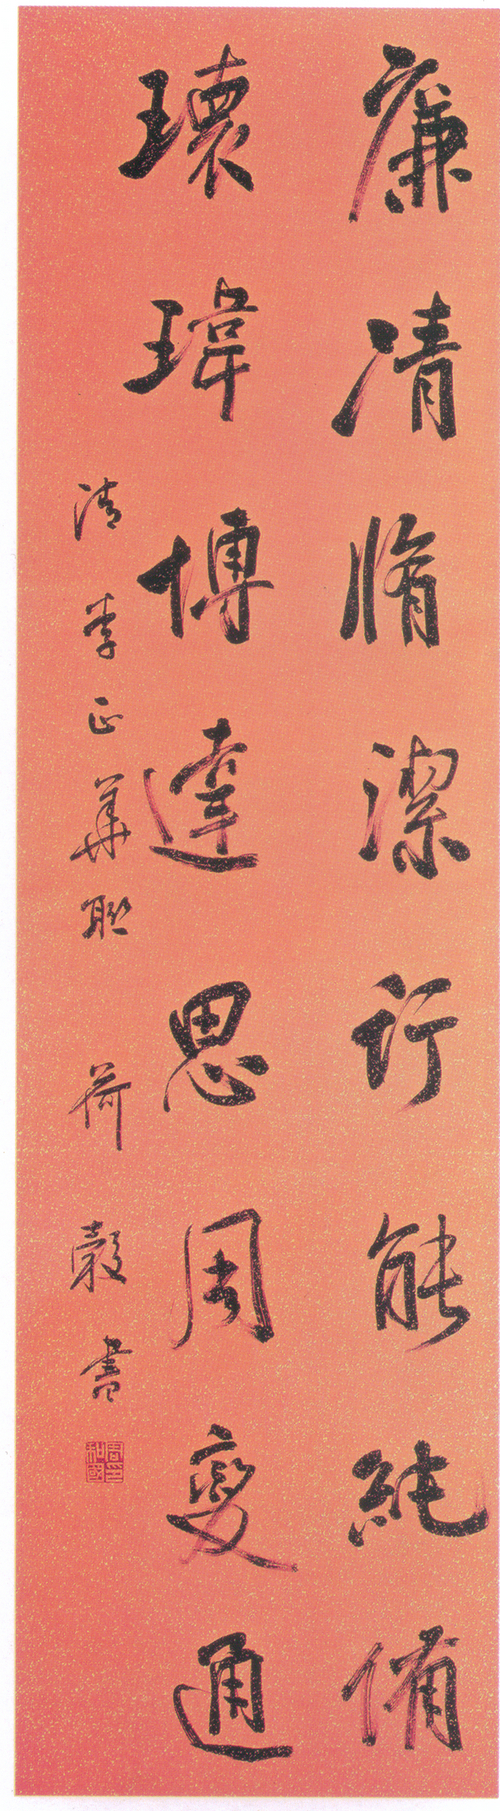 廉清脩潔行能純備
瓌瑋博達思周變通
清李正華聯 荷穀書
周印和國